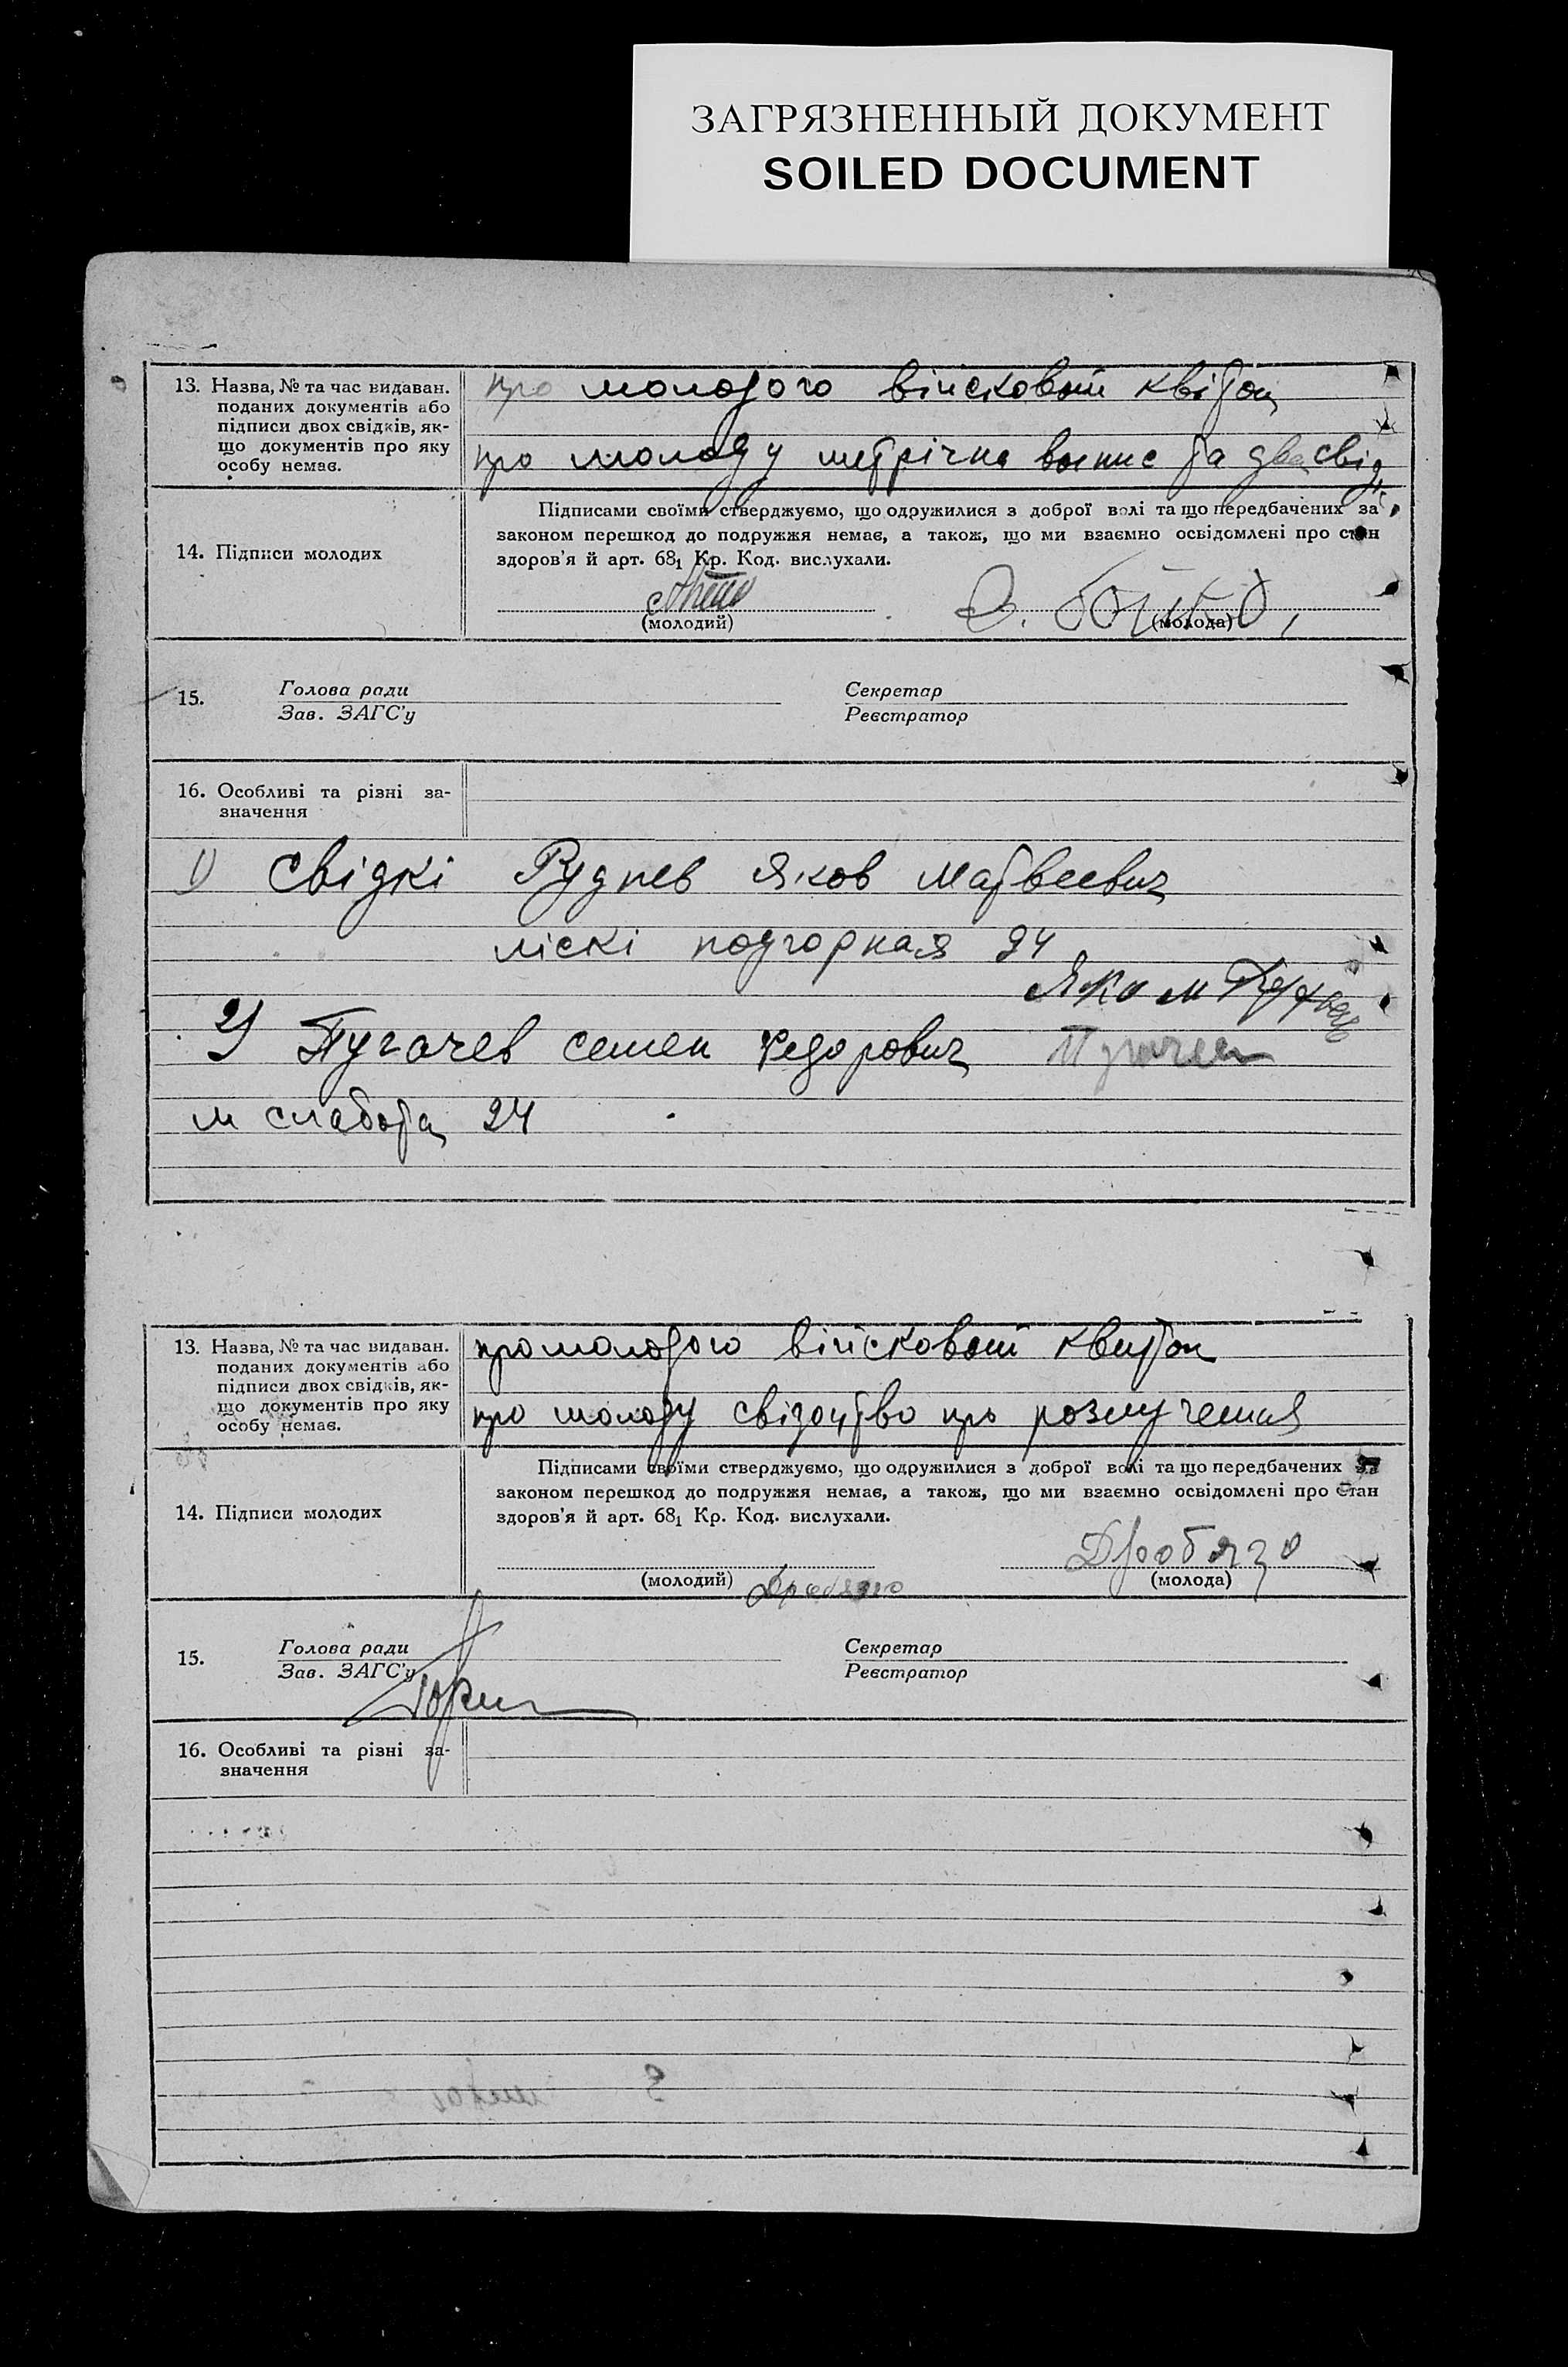 ЗАГРЯЗНЕННЫЙ ДОКУМЕНТ
SOILED DOCUMENT
13. Назва, № та час видаван.
поданих документів або
підписи двох свідків, як-
що документів про яку
особу немає.
про молодого військовий квіток
про молоду метрічна выпис та два свід.
14. Підписи молодих
Підписами своїми стверджуємо, що одружилися з доброї волі та що передбачених за
законом перешкод до подружжя немає, а також, що ми взаємно освідомлені про стан
здоров'я й арт. 68₁ Кр. Код. вислухали.
(молодий)
(молода)
15.
Голова ради
Зав. ЗАГС'у
Секретар
Реєстратор
16. Особливі та різні за-
значення
1) свідкі Руднев Яков Матвеевич
ліскі подгорная 24
2) Пугачев семен Федорович Пугачев
м слабота 24
13. Назва, № та час видаван.
поданих документів або
підписи двох свідків, як-
що документів про яку
особу немає.
про молодого військовий квиток
про молоду свідоцтво про розлучення
14. Підписи молодих
Підписами своїми стверджуємо, що одружилися з доброї волі та що передбачених за
законом перешкод до подружжя немає, а також, що ми взаємно освідомлені про стан
здоров'я й арт. 68₁ Кр. Код. вислухали.
Дробязго
(молодий)
(молода)
15.
Голова ради
Зав. ЗАГС'у
Секретар
Реєстратор
16. Особливі та різні за-
значення